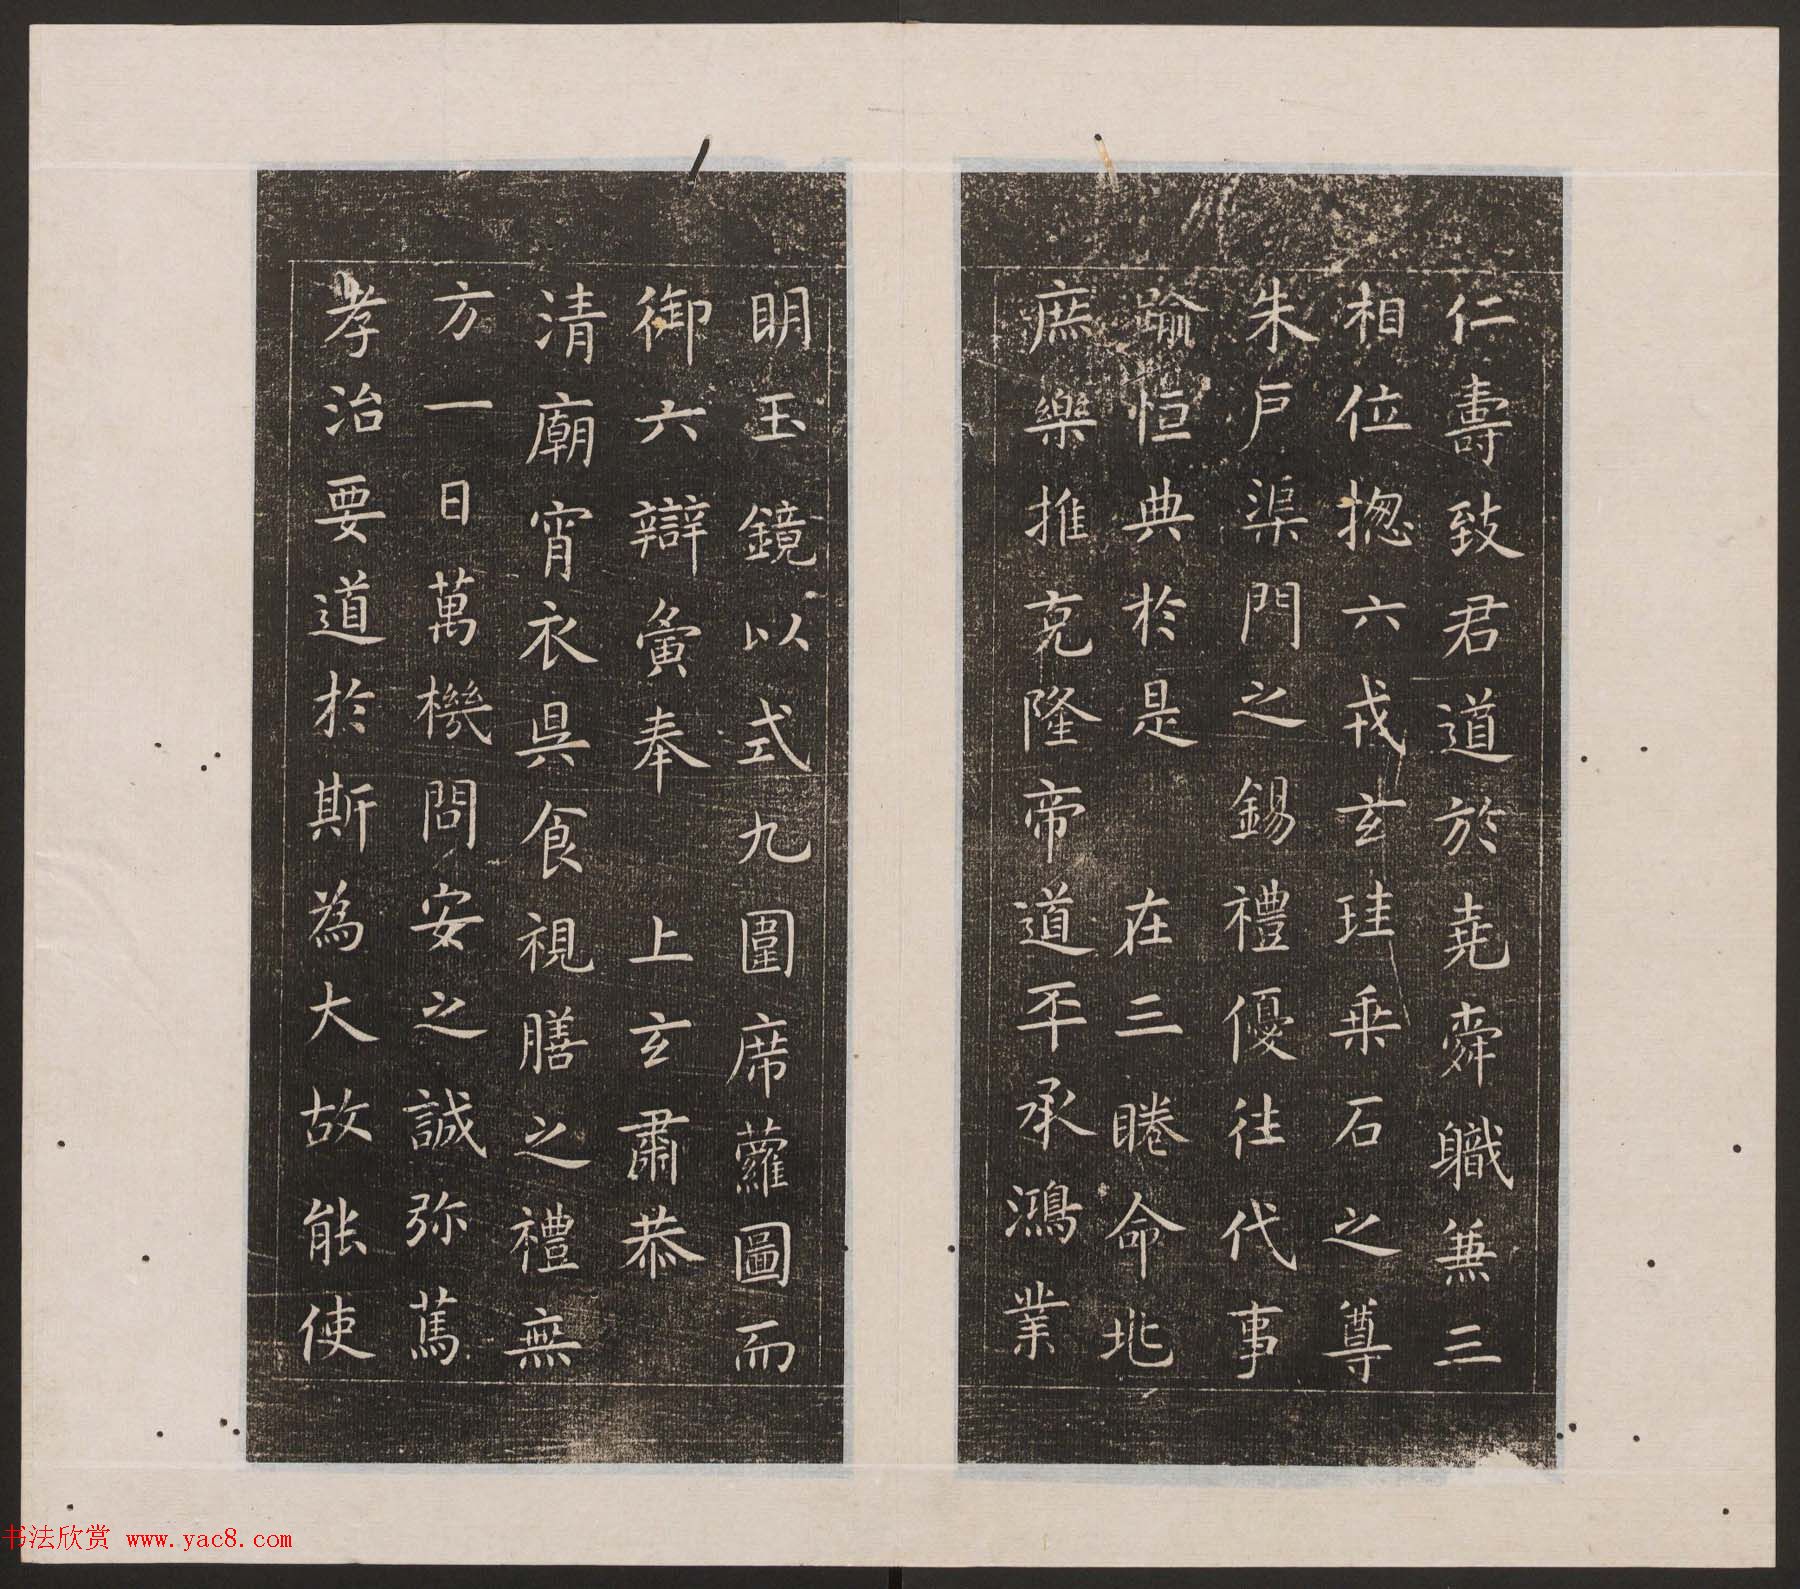 仁壽致君道於堯舜職兼三
相位揔六戎玄珪乘石之尊
朱戶渠門之錫禮優往代事
踰恒典於是 在三睠命兆
庶樂推克隆帝道丕承鴻業
明玉鏡以式九圍席蘿圖而
御六辯寅奉 上玄肅恭
清廟宵衣昃食視膳之禮無
方一日萬機問安之誠弥篤
孝治要道於斯為大故能使
书法欣赏 www.yac8.com